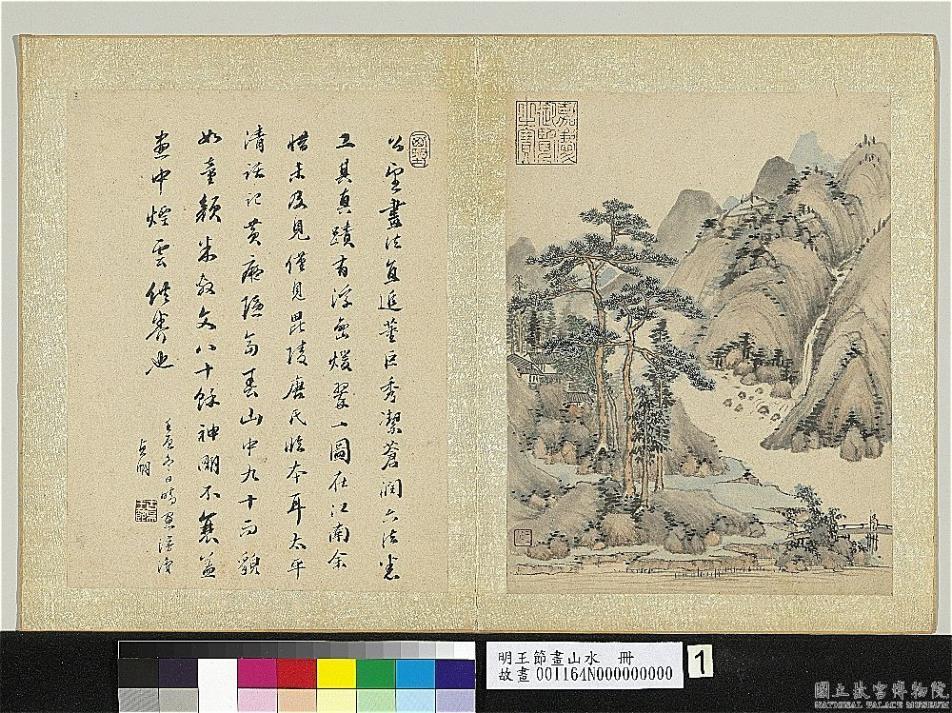 公望畫法直追董巨秀潔蒼潤六法悉
工其真蹟有浮嵐煖翠一圖在江南余
惜未及見僅見毘陵唐氏臨本耳太平
清話記黃隱富春山中九十而貌
如童顏米敷文八十餘神明不衰蓋
畫中烟雲供養也
嘉慶御覽之寶
明王節畫山水 冊
故畫 001164N000000000
1
國立故宮博物院
NATIONAL PALACE MUSEUM